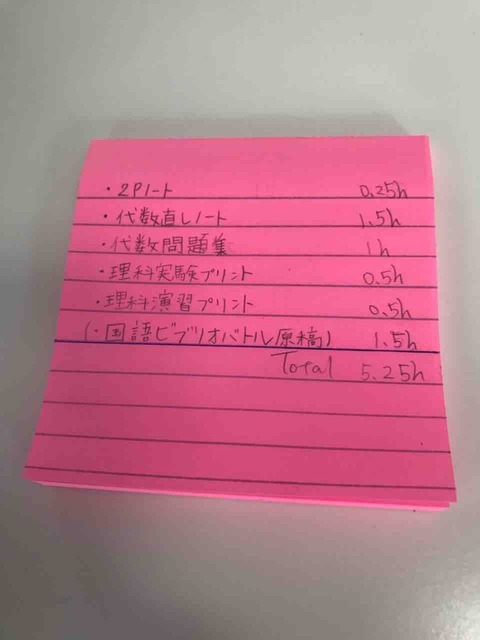 ・2Pノート 0.25h
・代数直しノート 1.5h
・代数問題集 1h
・理科実験プリント 0.5h
・理科演習プリント 0.5h
(・国語ビブリオバトル原稿) 1.5h
Total 5.25h